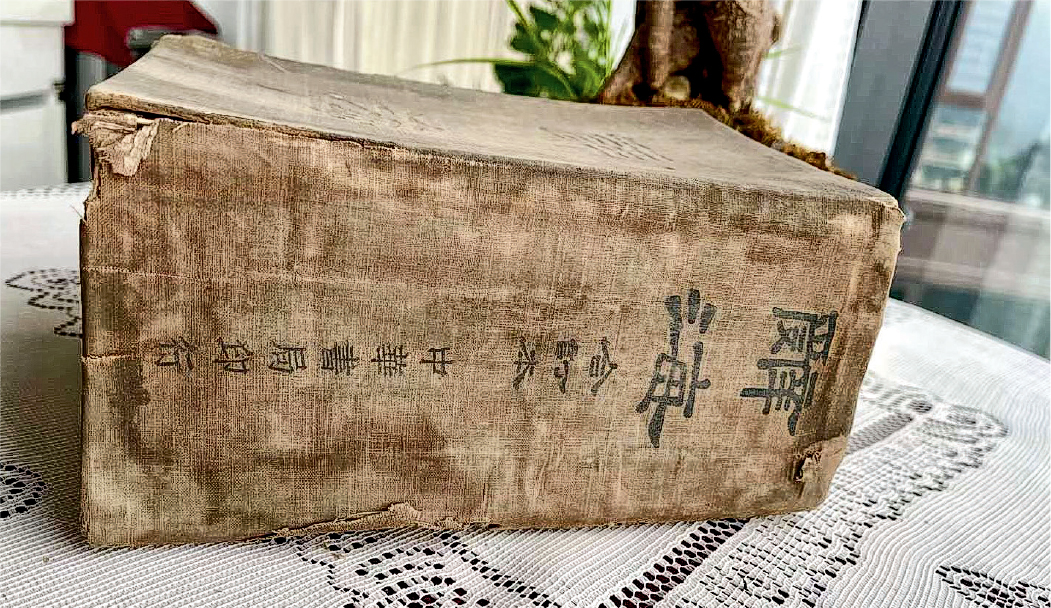 辭海
合訂本
中華書局印行